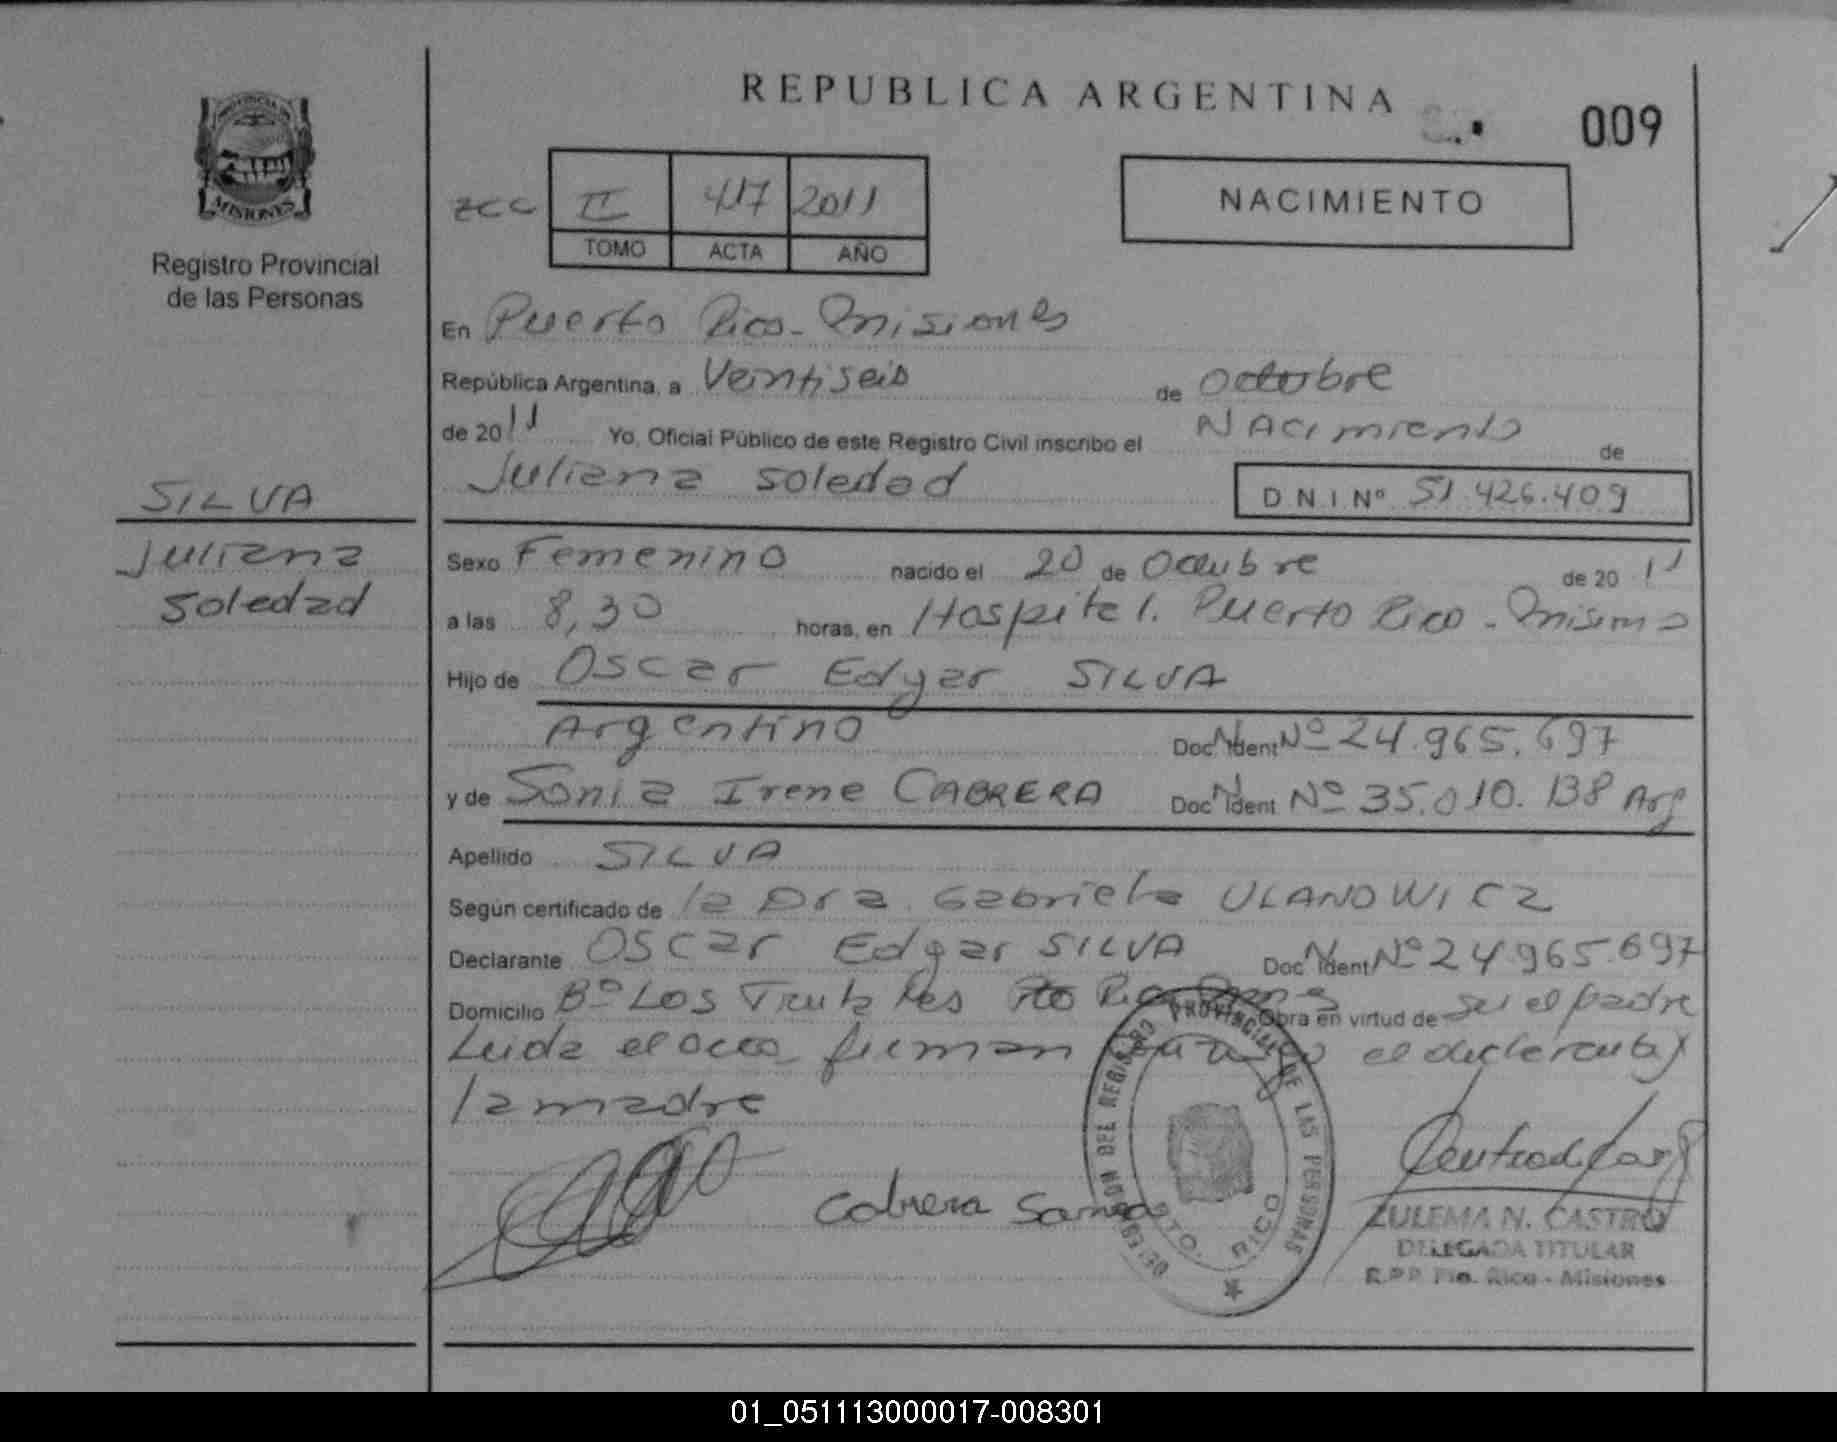 REPUBLICA ARGENTINA
009
PROVINCIA DE
MISIONES
Registro Provincial
de las Personas
II 417 2011
TOMO ACTA AÑO
NACIMIENTO
En Puerto Rico - Misiones
República Argentina, a Veintiseis de Octubre
de 2011 Yo, Oficial Público de este Registro Civil inscribo el Nacimiento de
Juliana Soledad
D.N.I Nº 51.426.409
SILVA
Juliana
Soledad
Sexo Femenino nacido el 20 de Octubre de 2011
a las 8,30 horas, en Hospital. Puerto Rico - Misiones
Hijo de Oscar Edgar SILVA
Argentino Doc. Ident Nº 24.965.697
y de Sonia Irene CABRERA Doc. Ident Nº 35.010.138 Arg
Apellido SILVA
Según certificado de la Dra Gabriela ULANOWICZ
Declarante Oscar Edgar SILVA Doc. Ident Nº 24.965.697
Domicilio Bº Los Pto Rico Obra en virtud de ser el padre
Leida el acta firman el declarante y
la madre
DELEGACION DEL REGISTRO PROVINCIAL DE LAS PERSONAS
PTO. RICO
Cabrera Sonia
ZULEMA N. CASTRO
DELEGADA TITULAR
R.P.P. Pto. Rico - Misiones
01_051113000017-008301